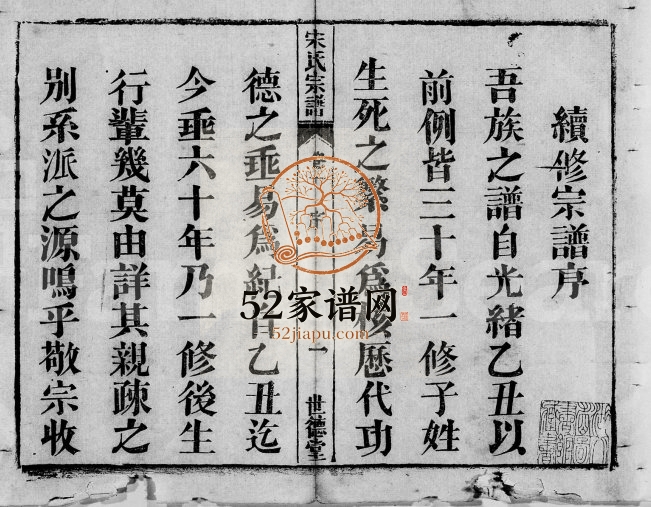 續修宗譜序
吾族之譜自光緒乙丑以
前例皆三十年一修子姓
生死之繁易爲核歷代功
宋氏宗譜
序
一
世德堂
德之垂易爲紀自乙丑迄
今垂六十年乃一修後生
行輩幾莫由詳其親疎之
別系派之源嗚乎敬宗收
52家谱网
52jiapu.com